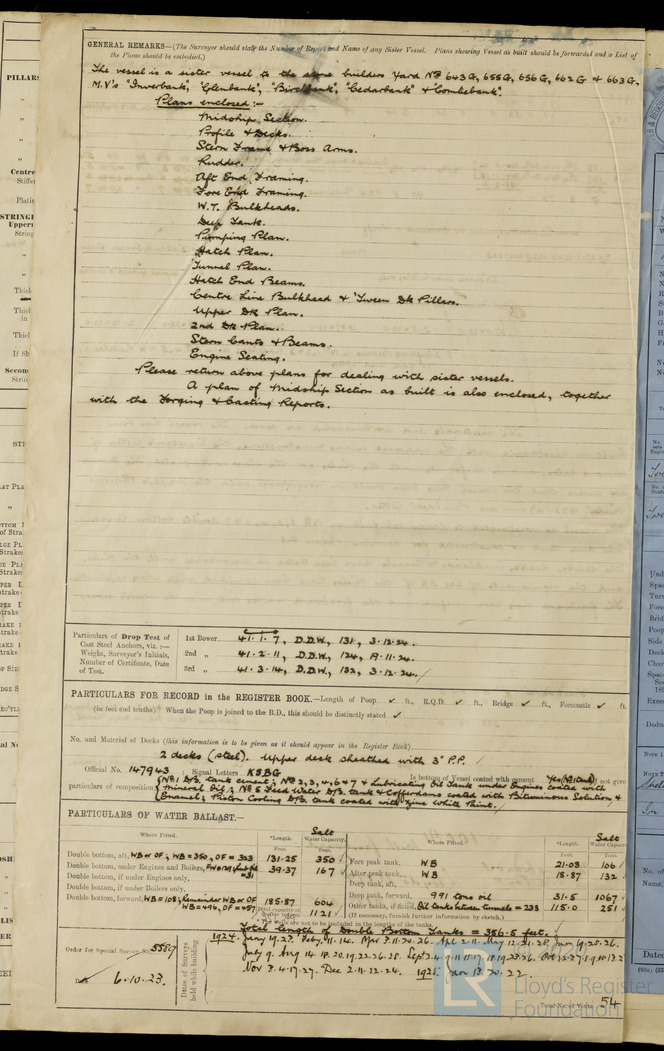 GENERAL REMARKS—(The Surveyor should state the Number of Report and Name of any Sister Vessel. Plans showing Vessel as built should be forwarded and a List of
the Plans should be embodied.)
The vessel is a sister vessel to the same builders Yard Nos 643G, 655G, 656G, 662G & 663G,
M.V's "Inverbank", "Glenbank", "Birchbank", "Cedarbank" & "Comliebank".
Plans enclosed:-
Midship Section.
Profile & Decks.
Stern Frame & Boss Arms.
Rudder.
Aft End Framing.
Fore End Framing.
W.T. Bulkheads.
Deep Tank.
Pumping Plan.
Hatch Plan.
Tunnel Plan.
Hatch End Beams.
Centre Line Bulkhead & 'Tween Dk Pillars.
Upper Dk Plan.
2nd Dk Plan.
Stern Cants & Beams.
Engine Seating.
Please return above plans for dealing with sister vessels.
A plan of Midship Section as built is also enclosed, together
with the Forging & Casting Reports.
Particulars of Drop Test of
Cast Steel Anchors, viz.:—
Weight, Surveyor's Initials,
Number of Certificate, Date
of Test.
1st Bower 41.1.7, D.D.W, 131, 3.12.24.
2nd „ 41.2.11, D.D.W, 124, 19.11.24.
3rd „ 41.3.14, D.D.W, 132, 3.12.24.
PARTICULARS FOR RECORD in the REGISTER BOOK.—Length of Poop ✓ ft., R.Q.D. ✓ ft., Bridge ✓ ft., Forecastle ✓ ft.
(in feet and tenths). When the Poop is joined to the B.D., this should be distinctly stated ✓
No. and Material of Decks (this information is to be given as it should appear in the Register Book)
2 decks (steel). Upper deck sheathed with 3" P.P.
Official No. 147943 Signal Letters KSBG Is bottom of Vessel coated with cement Yes (No 1 tank) if not give
particulars of composition No 1 D/B. tank cement; Nos 2, 3, 4, 6 & 7 & Lubricating Oil Tank under Engines coated with
Mineral Oil; No 5 Feed Water D/B. tank & Cofferdams coated with Bituminous Solution &
Enamel; Piston Cooling D/B. tank coated with Zinc White Paint.
PARTICULARS OF WATER BALLAST.—
Where Fitted. *Length. Salt Water Capacity. Where Fitted. *Length. Salt Water Capacity.
Feet. Tons. Feet. Tons.
Double bottom, aft, WB or OF; WB=350, OF=323 131.25 350 Fore peak tank, WB 21.08 106
Double bottom, under Engines and Boilers, 39.37 167 After peak tank, WB 18.87 132
Double bottom, if under Engines only, Deep tank, aft,
Double bottom, if under Boilers only, Deep tank, forward, 991 tons oil 31.5 1067
Double bottom, forward, WB=108; Remainder WB or OF 185.87 604 Other tanks, if fitted, Oil tanks between tunnels=238 115.0 251
WB=496, OF=457 1121 (If necessary, furnish further information by sketch.)
Total length of Double Bottom Tanks = 356.5 feet.
Order for Special Survey No. 5589
Date 6.10.23.
Dates of Surveys held while building
1924. Jany 19.23. Feby. 11.14. Mar 3.11.20.26. Apl 2.11. May 12.21.28. Jun 19.25.26.
1925 Jan 13.20.22.
Total No. of Visits 54
Lloyd's Register
Foundation